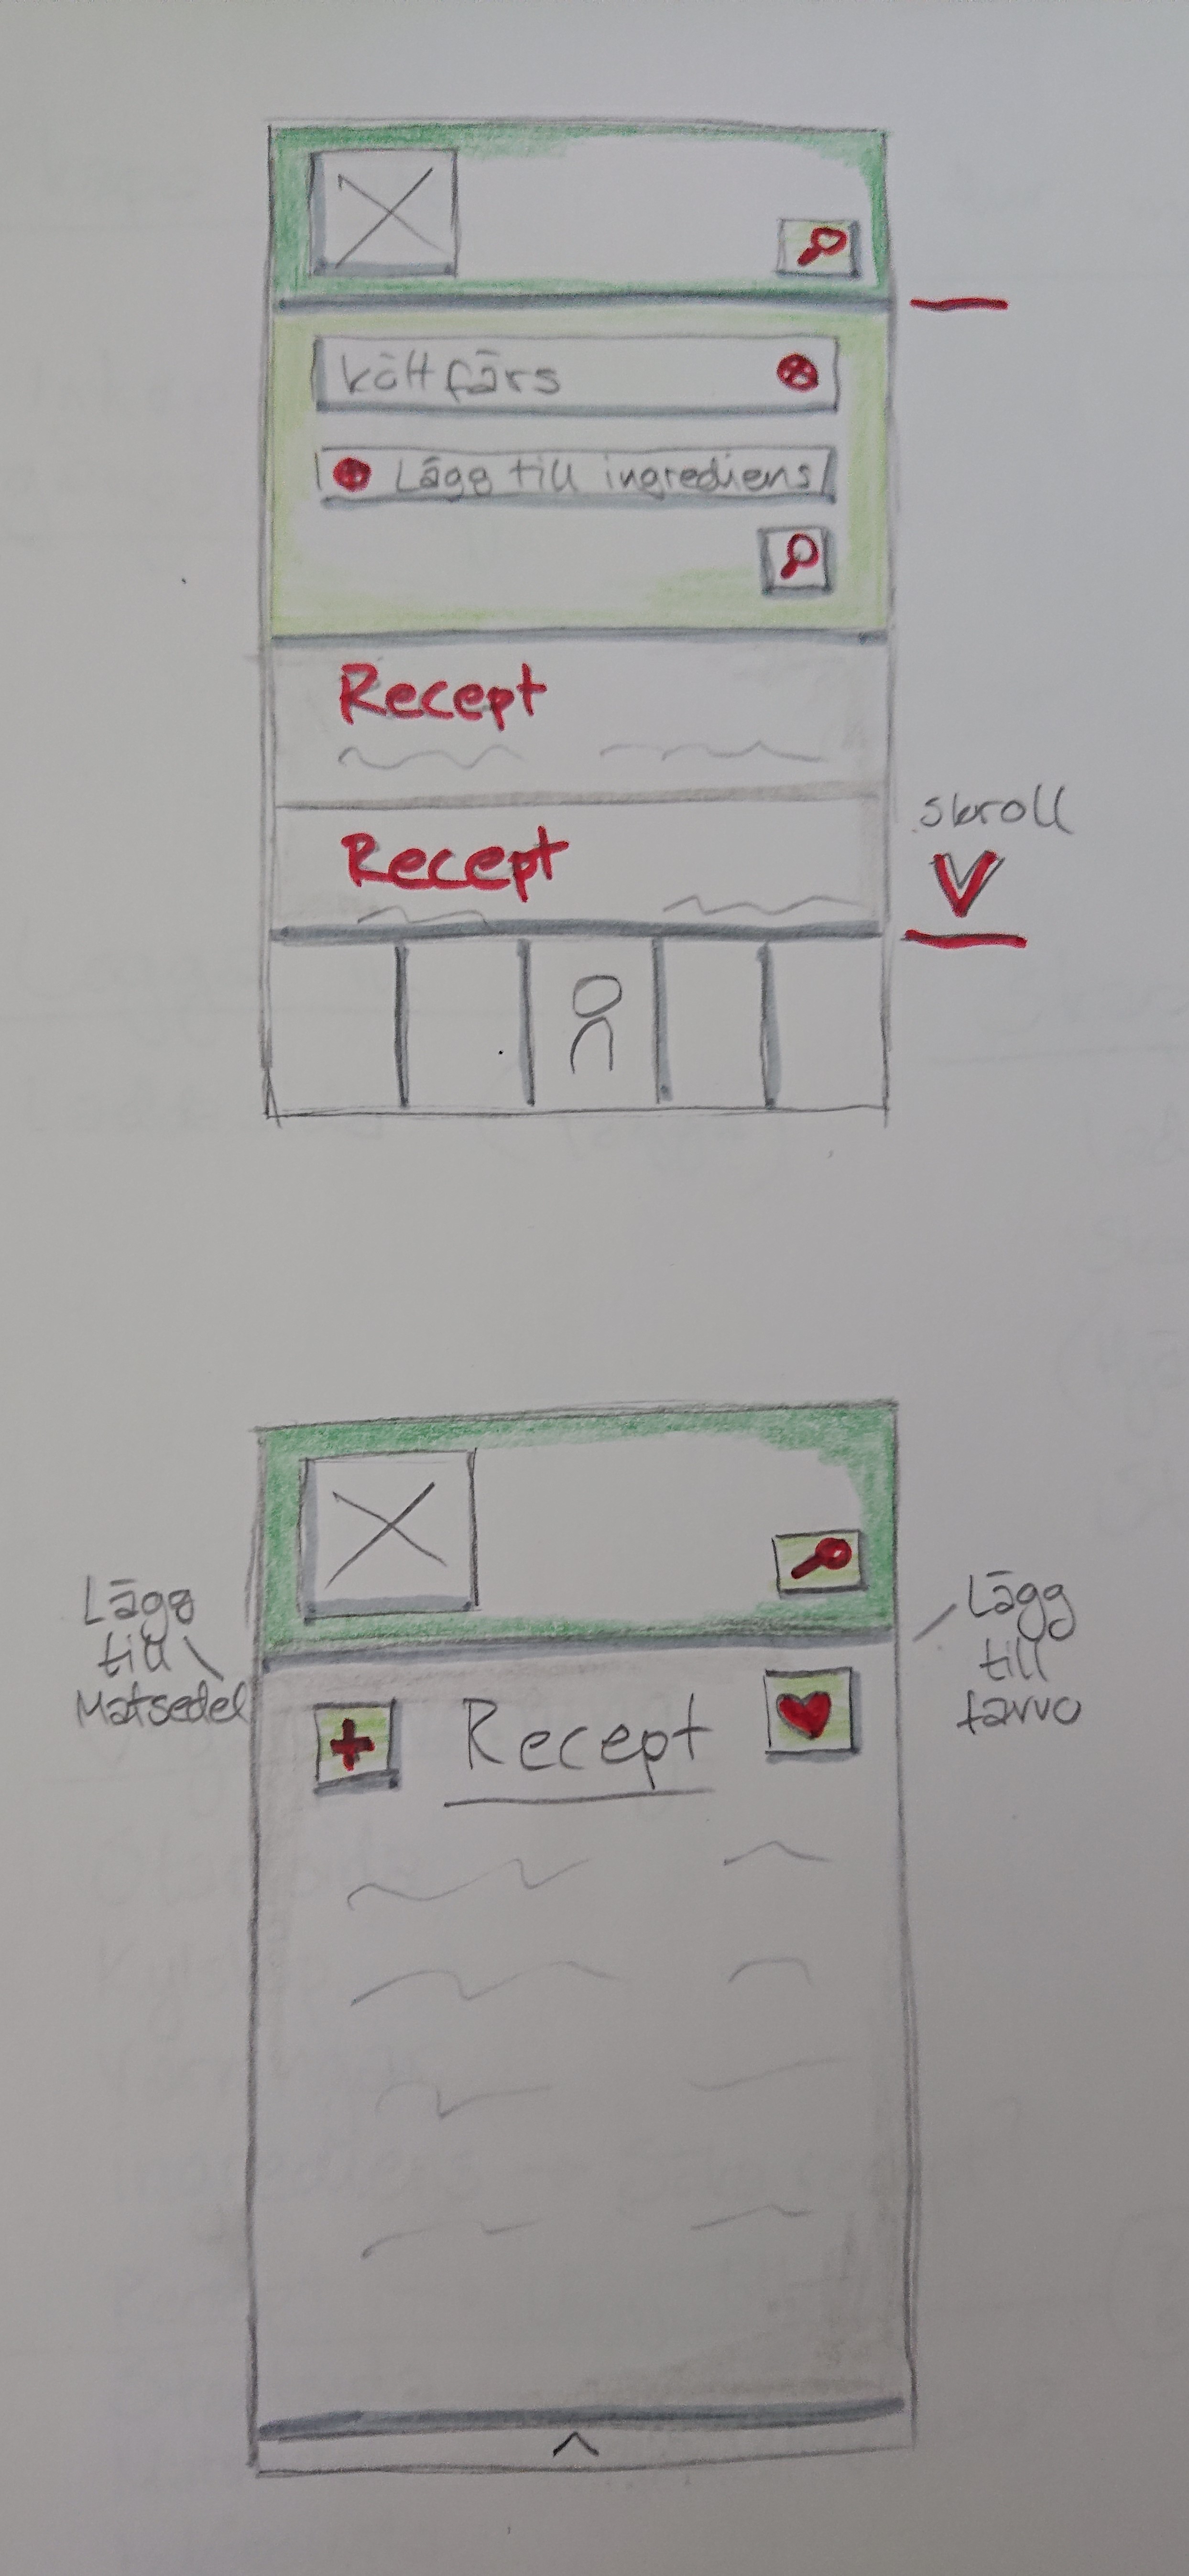 köttfärs
Lägg till ingrediens
Recept
Recept
skroll
Lägg
till
Matsedel
Recept
Lägg
till
favvo